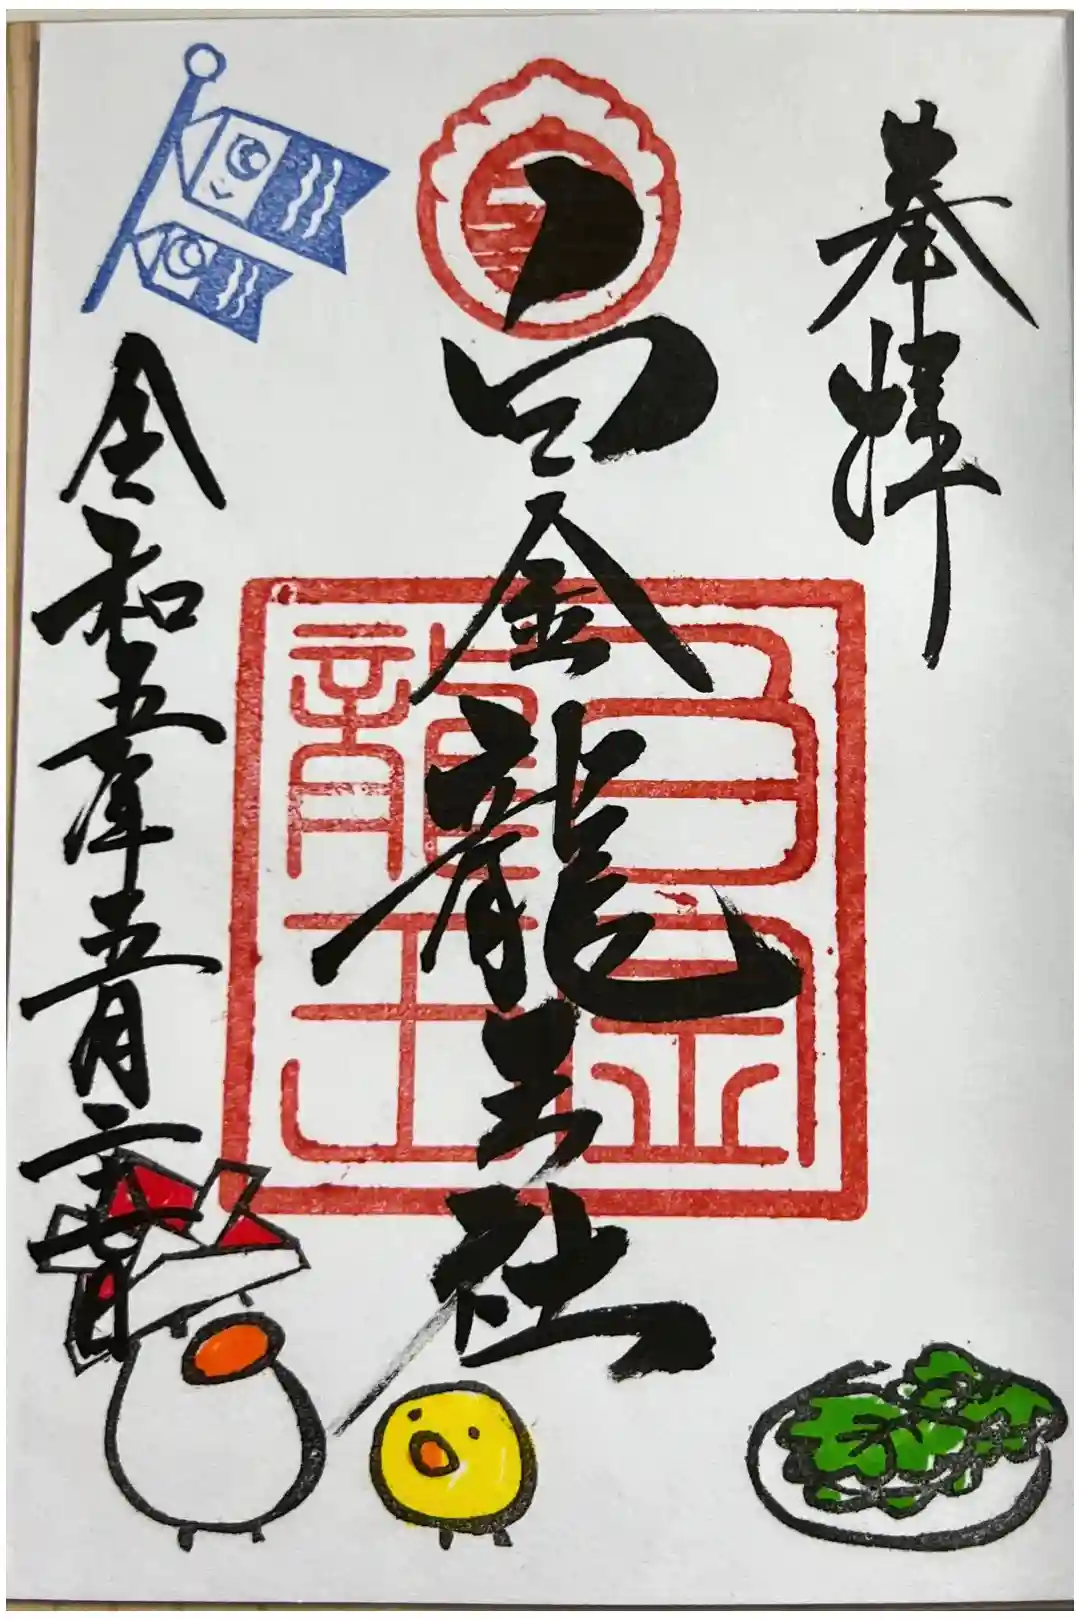 奉拝
白金龍王社
令和五年五月二十七日
白金
龍王